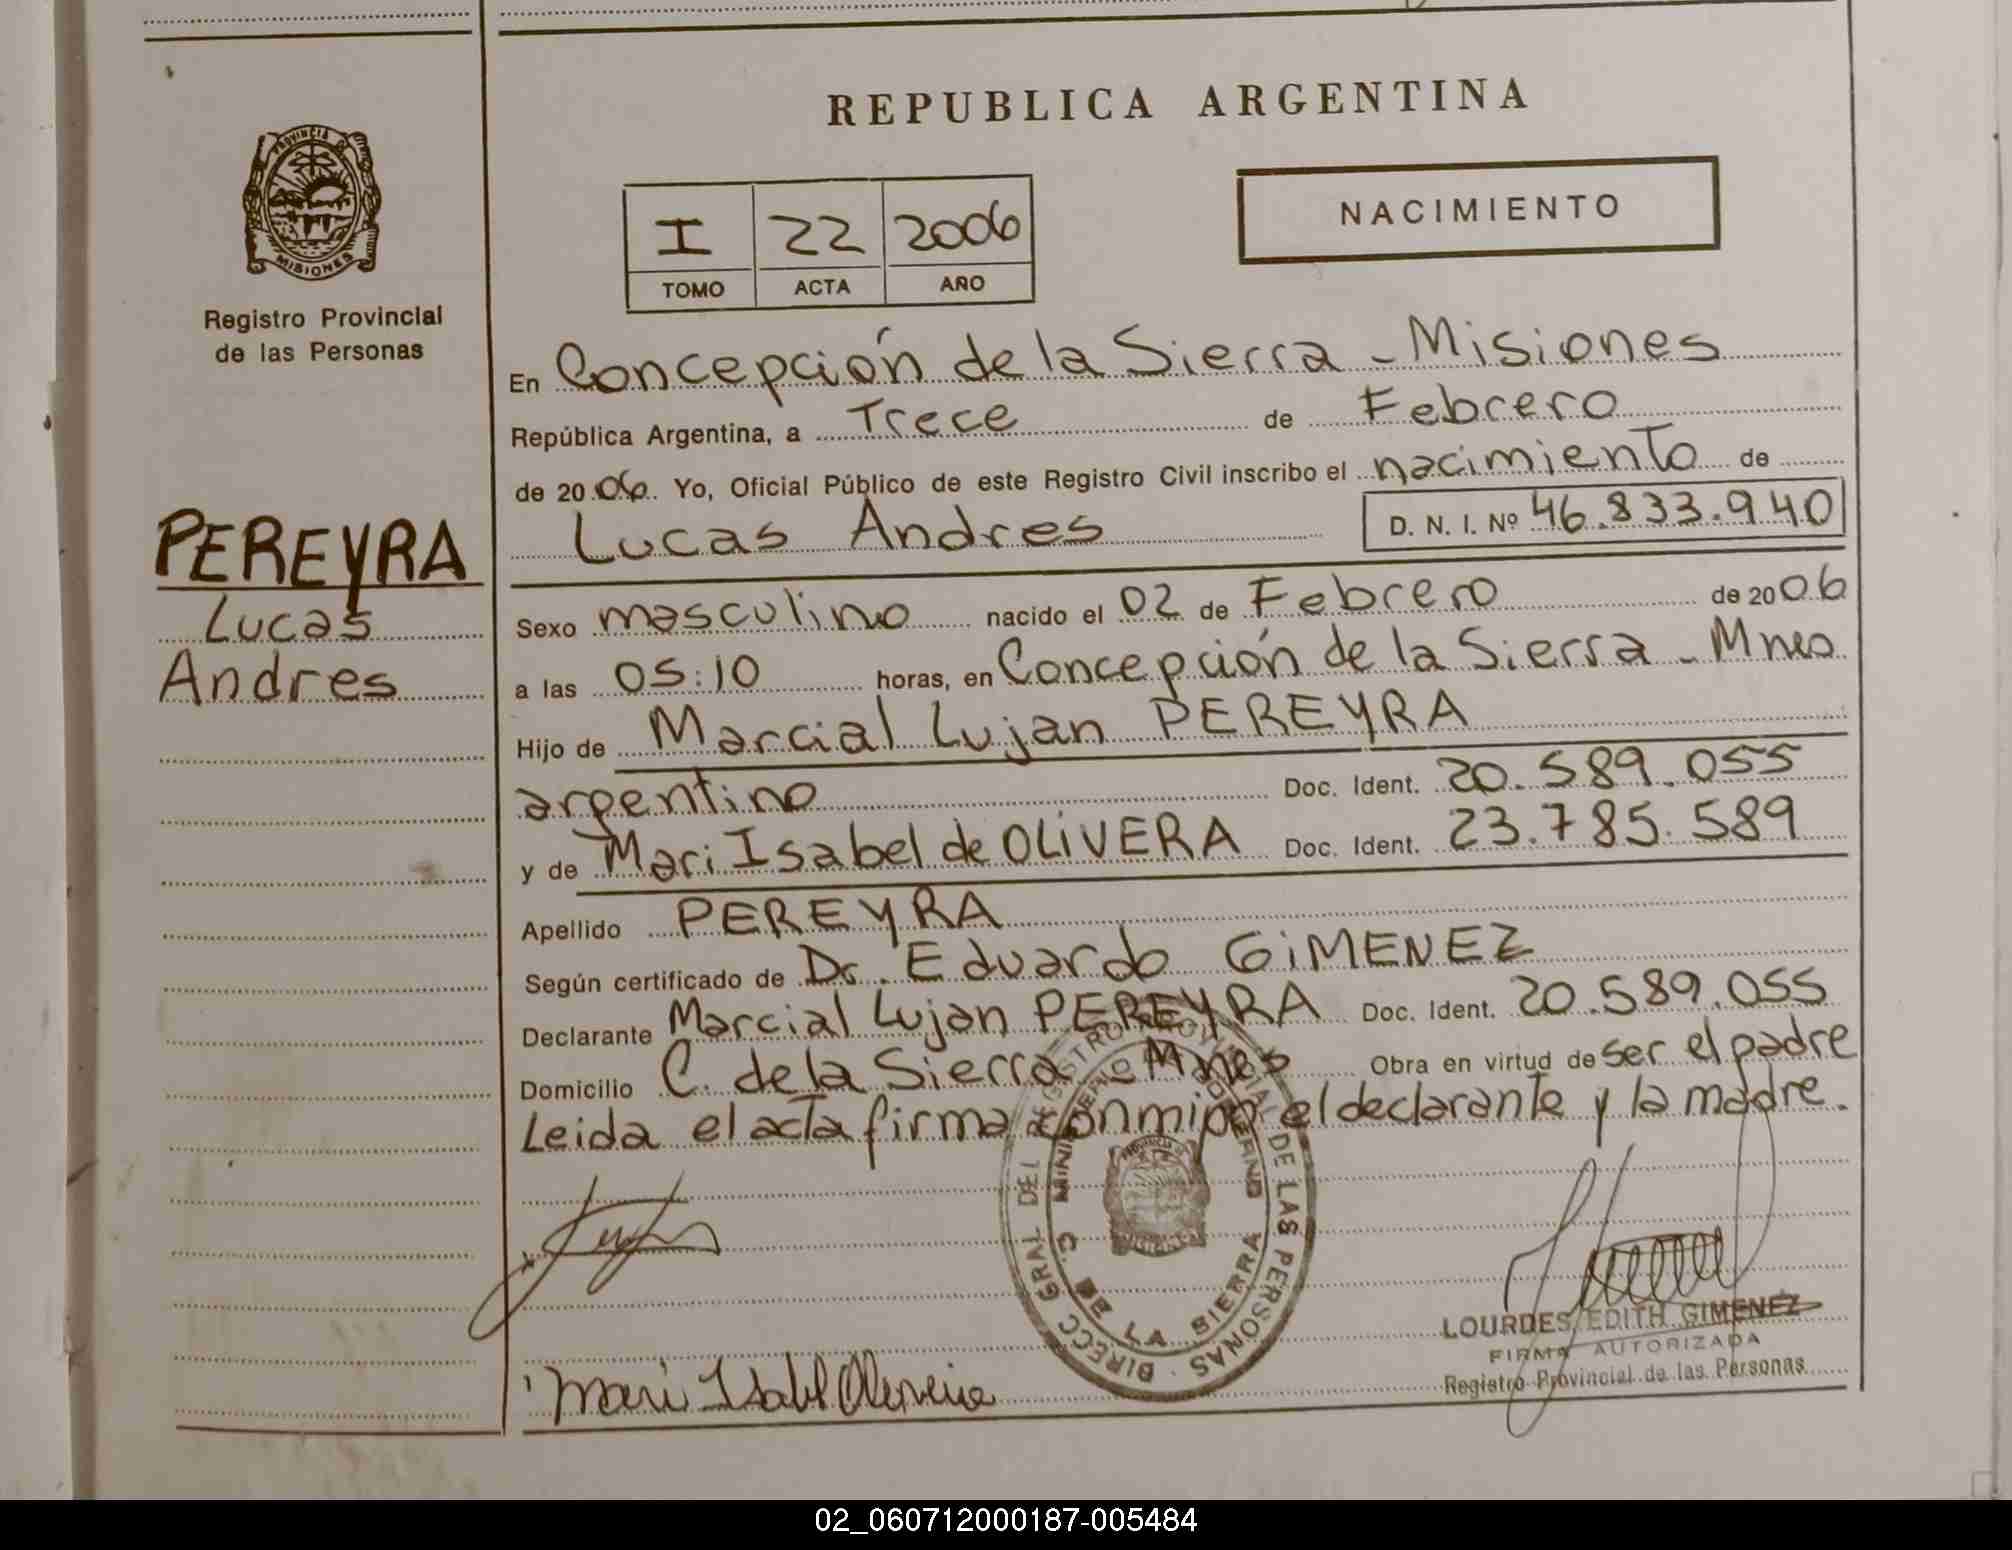 REPUBLICA ARGENTINA
PROVINCIA DE
MISIONES
Registro Provincial
de las Personas
PEREYRA
Lucas
Andres
I 22 2006
TOMO ACTA AÑO
NACIMIENTO
En Concepción de la Sierra - Misiones
República Argentina, a Trece de Febrero
de 2006. Yo, Oficial Público de este Registro Civil inscribo el nacimiento de
Lucas Andres D. N. I. Nº 46.833.940
Sexo masculino nacido el 02 de Febrero de 2006
a las 05:10 horas, en Concepción de la Sierra - Mnes
Hijo de Marcial Lujan PEREYRA
argentino Doc. Ident. 20.589.055
y de Mari Isabel de OLIVERA Doc. Ident. 23.785.589
Apellido PEREYRA
Según certificado de Dr. Eduardo GIMENEZ
Declarante Marcial Lujan PEREYRA Doc. Ident. 20.589.055
Domicilio C. de la Sierra - Mnes Obra en virtud de ser el padre
Leida el acta firma conmigo el declarante y la madre.
DIRECC GRAL DEL REGISTRO PROVINCIAL DE LAS PERSONAS
C. DE LA SIERRA
LOURDES EDITH GIMENEZ
FIRMA AUTORIZADA
Registro Provincial de las Personas
Mari Isabel
02_060712000187-005484